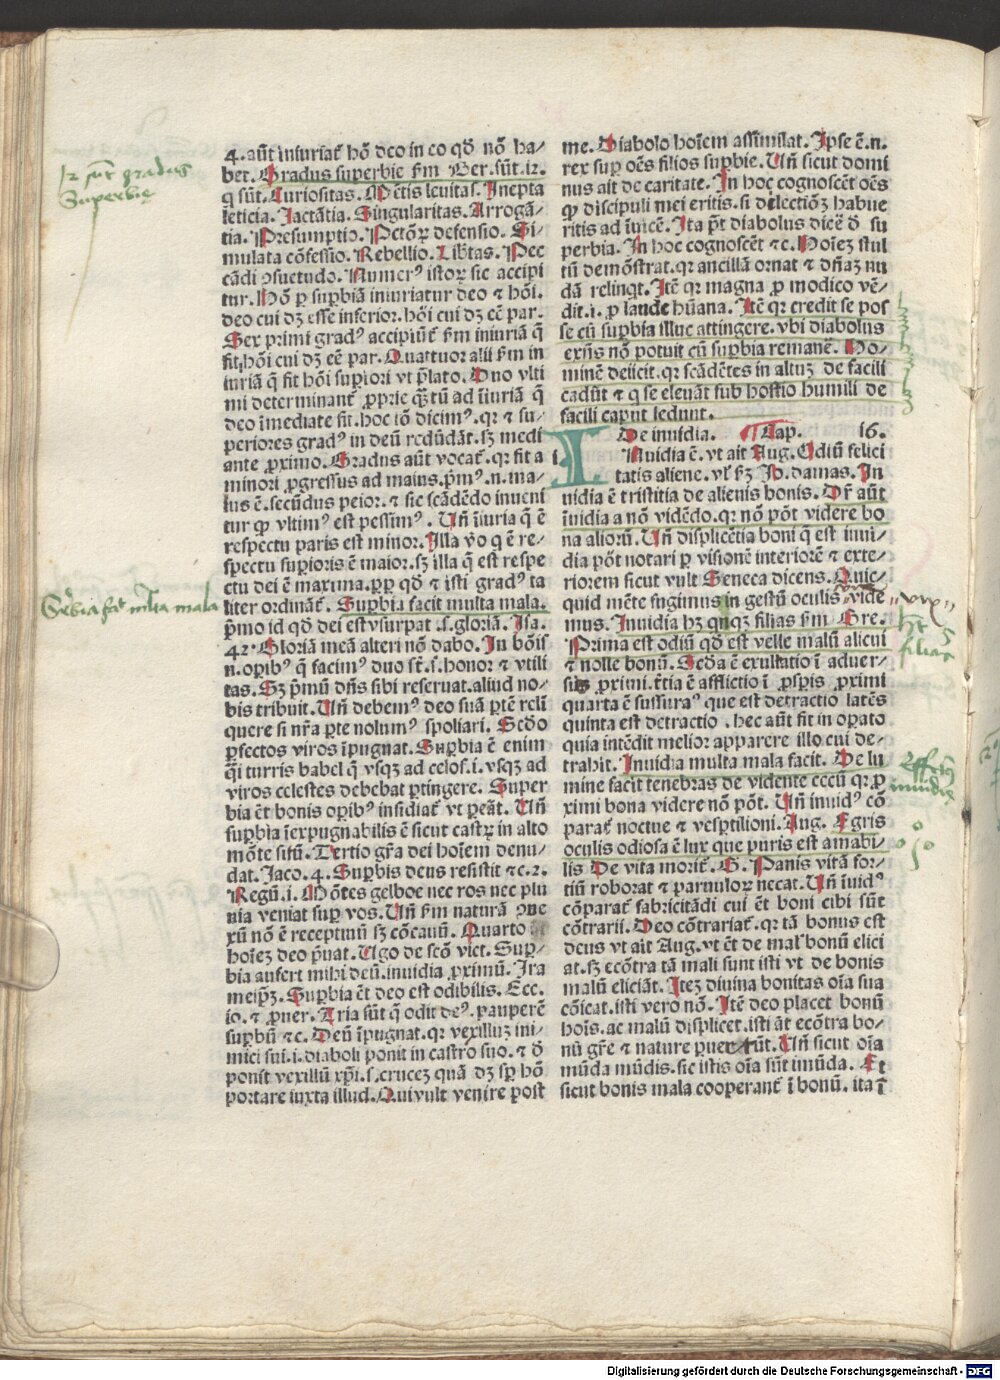 4. aūt iniuriat᷑ hō deo in eo qḋ nō ha/
bet. Gradus superbie ẜm Ber. sūt. 12.
q sūt. Curiositas. Mētis leuitas. Inepta
leticia. Jactātia. Singularitas. Arrogā/
tia. Presumptio. Pctōꝝ defensio. Si/
mulata cōfessio. Rebellio. Libt̄as. Pec
cādi ↄsuetudo. Numerꝰ istoꝝ sic accipi
tur. Hō ꝑ suꝑbiā iniuriatur deo ⁊ hōi.
deo cui dꝫ esse inferior. hōi cui dꝫ eē par.
Sex primi gradꝰ accipiūt᷑ ẜm iniuriā q̄
fit hōi cui dꝫ eē par. Quattuor alii ẜm in
iuriā q̄ fit hōi suꝑiori vt p̄lato. Duo vlti
mi determinant᷑ ꝓprie qꝫtū ad īiuriā q̄
deo īmediate fit. hoc iō dicimꝰ. qꝛ ⁊ su/
periores gradꝰ in deū redūdāt. sꝫ medi
ante ꝓximo. Gradus aūt vocat᷑. qꝛ fit a
minori ꝓgressus ad maius. p̄mꝰ .n. ma/
lus ē. secūdus peior. ⁊ sic scādēdo inueni
tur ꝙ vltimꝰ est pessimꝰ. Uñ īiuria q̄ ē
respectu paris est minor. Illa ṽo q̄ ē re/
spectu suꝑioris ē maior. sꝫ illa q̄ est respe
ctu dei ē maxima. ꝓꝑ qḋ ⁊ isti gradꝰ ta
liter ordināt᷑. Suꝑbia facit multa mala.
p̄mo id qḋ dei est vsurpat .s. gloriā. Isa.
42. Gloriā meā alteri nō dabo. In bōis
n. oꝑibꝰ q̄ facimꝰ duo st̄. s. honor ⁊ vtili
tas. Sꝫ p̄mū dñs sibi reseruat. aliud no/
bis tribuit. Uñ debemꝰ deo suā ꝑtē reli
quere si nr̄a ꝑte nolumꝰ spoliari. Scḋo
ꝑfectos viros īpugnat. Suꝑbia ē enim
q̄si turris babel q̄ vsqꝫ ad celos .i. vsqꝫ ad
viros celestes debebat ꝑtingere. Super
bia ēt bonis oꝑibꝰ insidiat᷑ vt ꝑeāt. Uñ
suꝑbia īexpugnabilis ē sicut castꝝ in alto
mōte sitū. Tertio gr̄a dei hoīem denu/
dat. Jaco. 4. Suꝑbis deus resistit ⁊c. 2.
Regū. i. Mōtes gelboe nec ros nec plu
uia veniat suꝑ vos. Uñ ẜm naturā ↄue
xū nō ē receptiuū sꝫ cōcauū. Quarto
hoīeꝫ deo p̄uat. Ugo de scṫo vict. Suꝑ/
bia aufert mihi deū. inuidia ꝓximū. Ira
meipꝫ. Suꝑbia ēt deo est odibilis. Ecc.
io. ⁊ ꝓuer. Tria sūt q̄ odit deꝰ. pauperē
suꝑbū ⁊c. Deū īpugnat. qꝛ vexilluꝫ ini/
mici sui .i. diaboli ponit in castro suo. ⁊ ḋ
ponit vexillū xp̄i .s. cruceꝫ quā dꝫ sꝑ hō
portare iuxta illud. Qui vult venire post
me. Diabolo hoīem assimilat. Ipse ē .n.
rex suꝑ oēs filios suꝑbie. Uñ sicut domi
nus ait de caritate. In hoc cognoscēt oēs
ꝙ discipuli mei eritis. si dilectiōꝫ habue
ritis ad īuicē. Ita p̄t diabolus dicē ḋ su
perbia. In hoc cognoscēt ⁊c. Hoīeꝫ stul
tū demōstrat. qꝛ ancillā ornat ⁊ dn̄aꝫ nu
dā relinqt. Itē qꝛ magna ꝓ modico vē/
dit. i. ꝓ laude hūana. Itē qꝛ credit se pos
se cū suꝑbia illuc attingere. vbi diabolus
exn̄s nō potuit cū suꝑbia remanē. Ho/
minē deiicit. qꝛ scādētes in altuꝫ de facili
cadūt ⁊ q se eleuāt sub hostio humili de
facili caput ledunt.
De inuidia. Cap. 16.
INuidia ē. vt ait Aug. Odiū felici
tatis aliene. vl̓ ẜꝫ Io. damas. In
uidia ē tristitia de alienis bonis. Dr̄ aūt
īuidia a nō vidēdo. qꝛ nō pōt videre bo
na alioꝝ. Uñ displicētia boni q̄ est inui/
dia pōt notari ꝑ visionē interiorē ⁊ exte/
riorem sicut vult Seneca dicens. Quic/
quid mēte fingimus in gestū oculis vide
mus. Inuidia hꝫ qnqꝫ filias ẜm Gre.
Prima est odiū qḋ est velle malū alicui
⁊ nolle bonū. Scḋa ē exultatio ī aduer/
sis ꝓximi. t̄tia ē afflictio ī ꝓsꝑis ꝓximi
quarta ē susuraꝰ que est detractio latēs
quinta est detractio . hec aūt fit in oꝑato
quia intēdit melior apparere illo cui de/
trahit. Inuidia multa mala facit. De lu
mine facit tenebras de vidente cecū qꝛ ꝓ
ximi bona videre nō pōt. Uñ inuidꝰ cō
parat᷑ noctue ⁊ vesꝑtilioni. Aug. Egris
oculis odiosa ē lux que puris est amabi/
lis De vita morit᷑. G. Panis vitā for/
tiū roborat ⁊ paruuloꝝ necat. Uñ īuidꝰ
cōparat᷑ fabricitādi cui ēt boni cibi sūt
cōtrarii. Deo cōtrariat᷑. qꝛ tā bonus est
deus vt ait Aug. vt ēt de mal̓ bonū elici
at. sꝫ ecōtra tā mali sunt isti vt de bonis
malū eliciāt. Iteꝫ diuina bonitas oīa sua
cōicat. isti vero nō. Itē deo placet bonū
hoīs. ac malū displicet. isti āt ecōtra bo/
nū gr̄e ⁊ nature ꝑuertūt. Uñ sicut oīa
mūda mūdis. sic istis oīa sūt imūda. Et
sicut bonis mala cooperant᷑ ī bonū. ita ī
12 sūt gradus
Superbie
Suꝑbia fac̄ multa mala
hꝫ 5
filias
Effectꝰ
inuidie
Digitalisierung gefördert durch die Deutsche Forschungsgemeinschaft - DFG